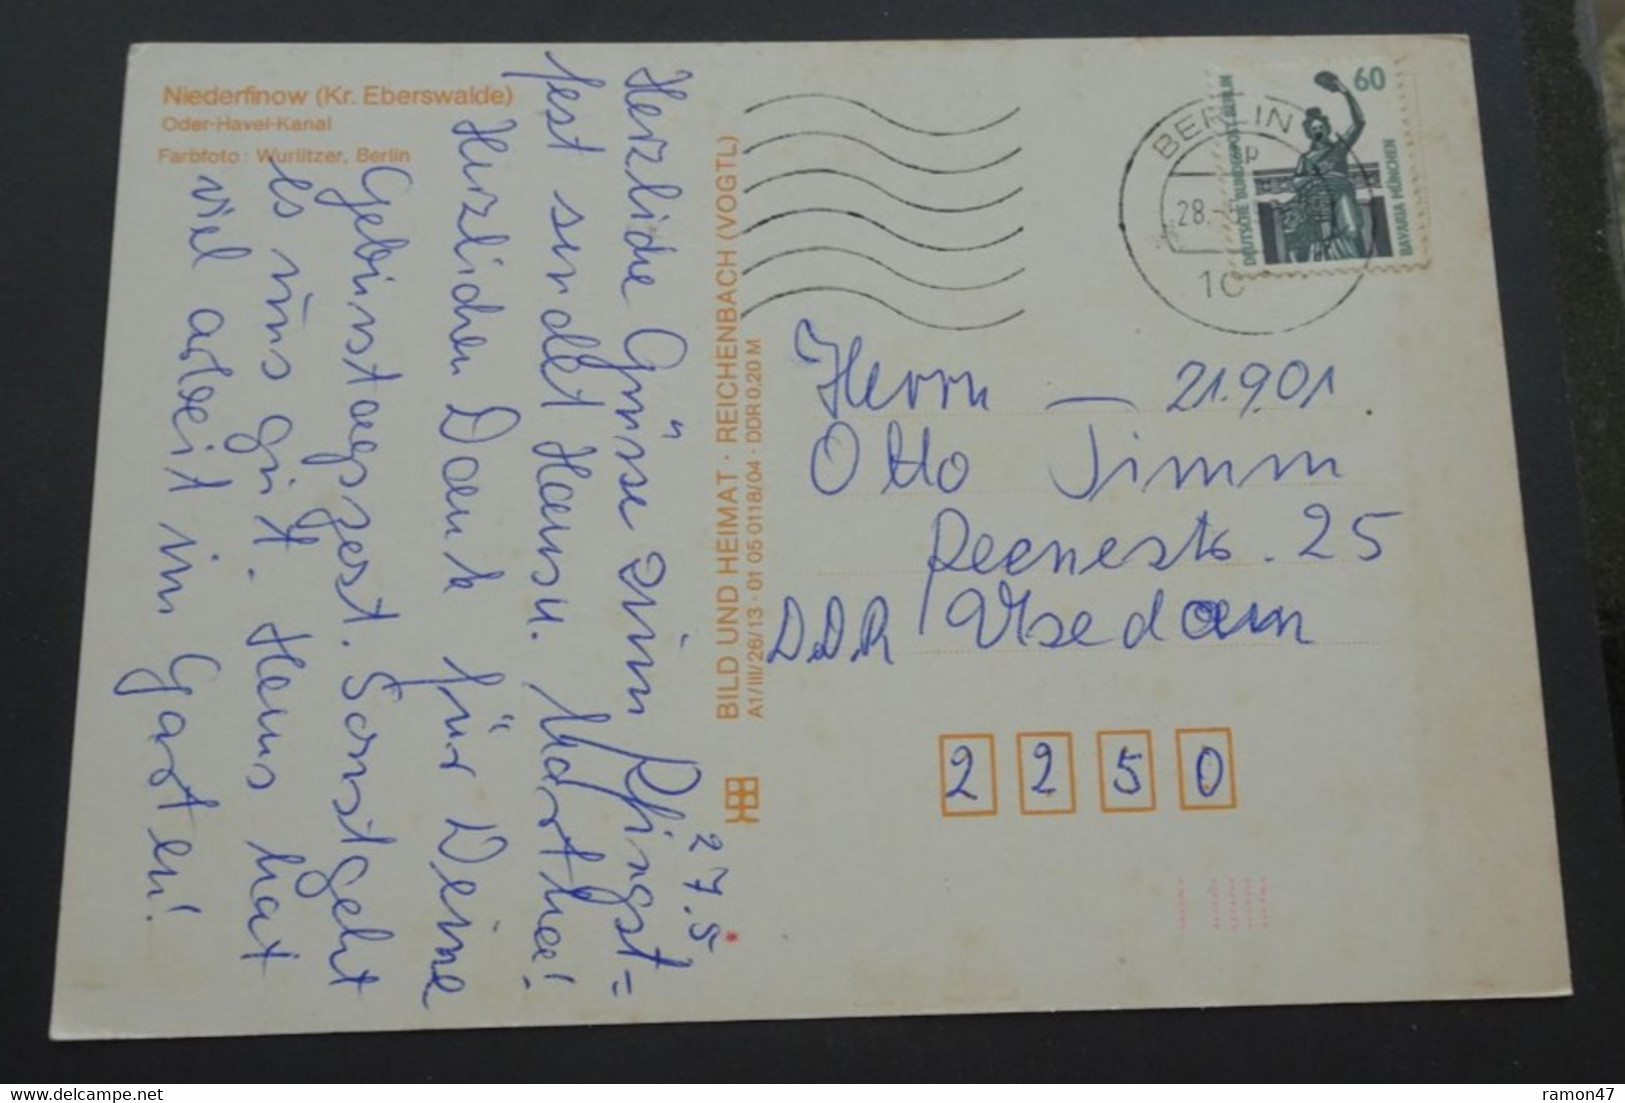 Niederfinow (Kr. Eberswalde)
Oder-Havel-Kanal
Farbfoto: Wurlitzer, Berlin
27.5
Herzliche Grüsse zum Pfingst=
fest sendet Hans u. Martha!
Herzlichen Dank für Deine
Gebürtstagspost. Sonst geht
es uns gut. Hans hat
viel arbeit im Garten!
BILD UND HEIMAT · REICHENBACH (VOGTL)
A1/III/26/13 · 01 05 0118/04 · DDR 0,20 M
BERLIN
28.
10
60
DEUTSCHE BUNDESPOST BERLIN
BAVARIA MÜNCHEN
Herrn — 21.9.01
Otto Timm
Peenestr. 25
DDR Usedom
2 2 5 0
ramon47